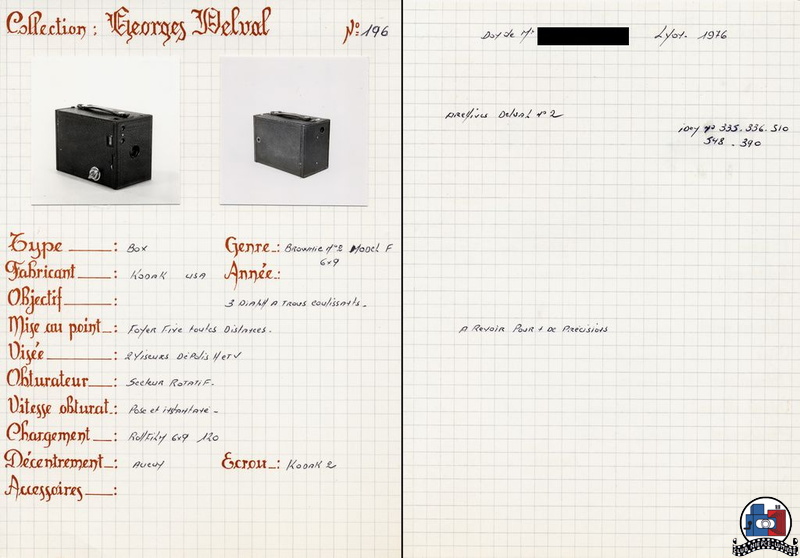 Collection : Georges Delval
N° 196
Type : Box
Genre : Brownie n°2 Model F
6x9
Fabricant : Kodak USA
Année :
Objectif : 3 Diaph A Trous coulissants.
Mise au point : Foyer Fixe toutes Distances.
Visée : 2 Viseurs Dépolis H et V
Obturateur : Secteur Rotatif.
Vitesse obturat. : Pose et instantané -
Chargement : Rollfilm 6x9 120
Décentrement : Aucun
Ecrou : Kodak 2
Accessoires :
Don de Mr Lyon. 1976
Archives Delval n° 2
n° 335. 336. 510
548 . 390
A Revoir Pour + De Précisions